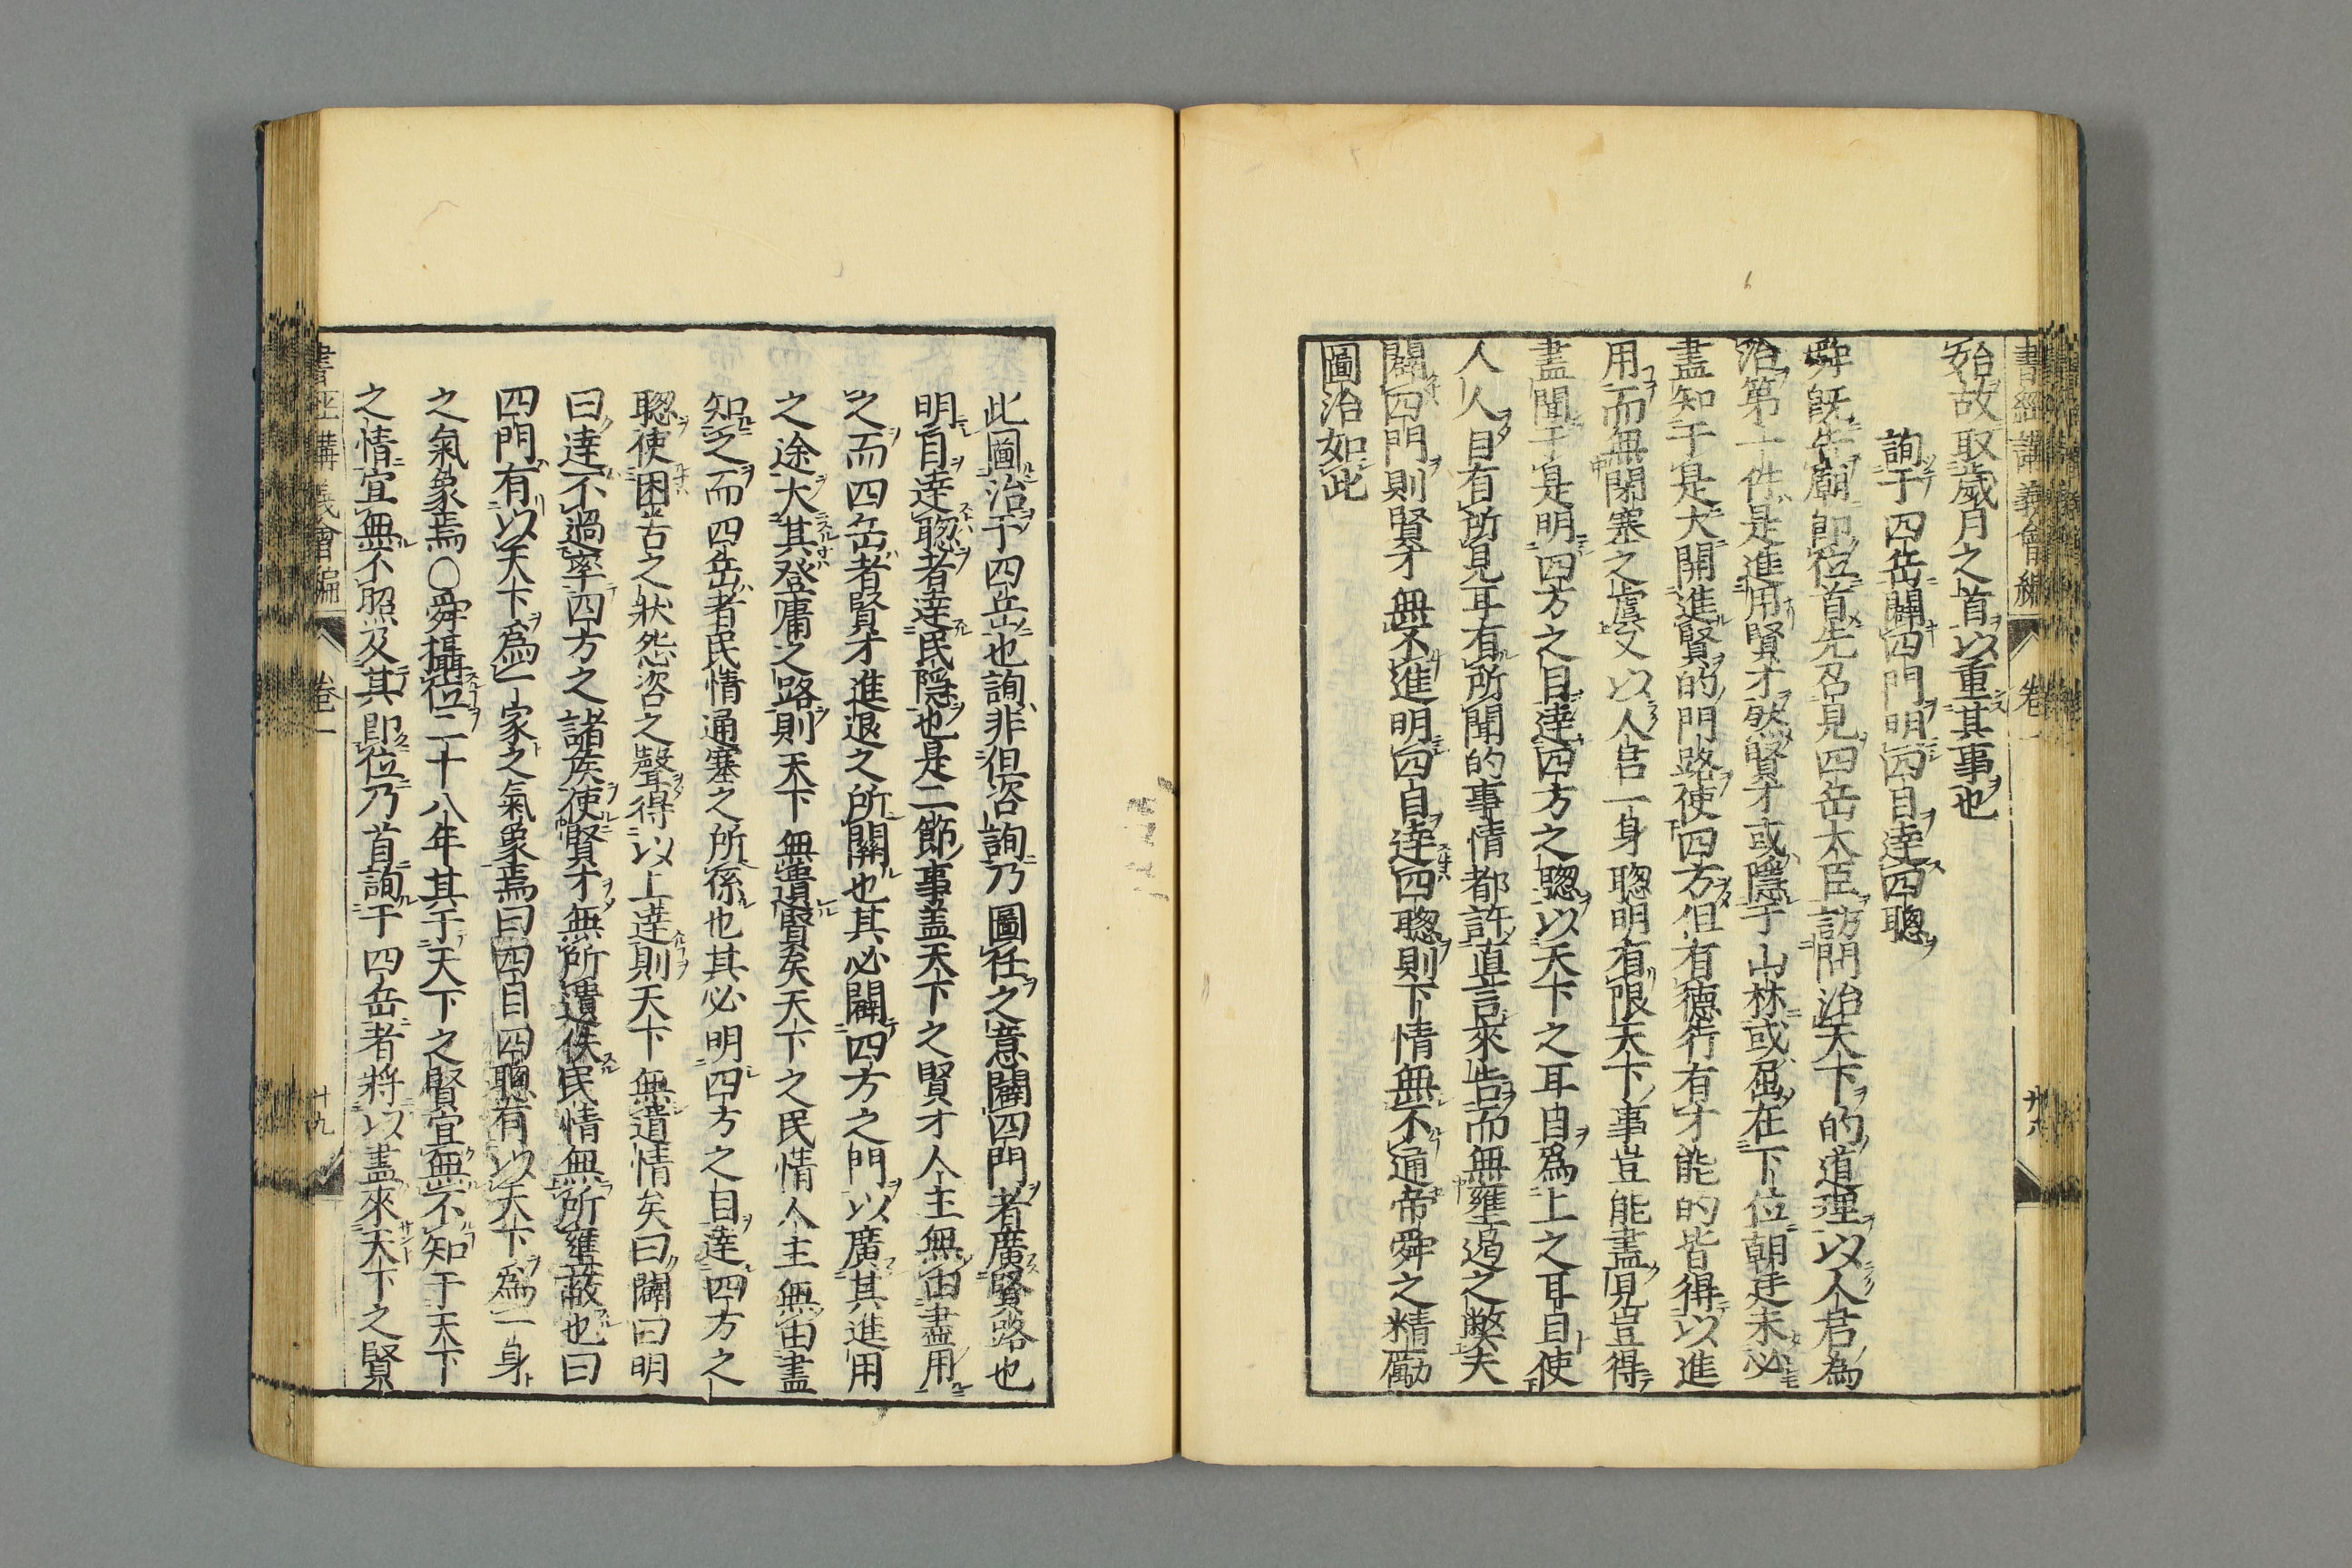 書經講義會編
卷一
始故取歲月之首以重其事也
詢于四岳闢四門明四目達四聰
舜既告廟即位首先召見四岳大臣訪問治天下的道理以人君為
治第一件是進用賢才然賢才或隱于山林或屈在下位朝廷未必
盡知于是大開進賢的門路使四方但有德行有才能的皆得以進
用而無閉塞之虞又以人君一身聰明有限天下事豈能盡見豈得
盡聞于是明四方之目達四方之聰以天下之耳目為上之耳目使
人人目有所見耳有所聞的事情都許直言來告而無壅遏之弊夫
闢四門則賢才無不進明四目達四聰則下情無不通帝舜之精勵
圖治如此
此圖治于四岳也詢非但咨詢乃圖任之意闢四門者廣賢路也
明目達聰者達民隱也是二節事蓋天下之賢才人主無由盡用
之而四岳者賢才進退之所關也其必闢四方之門以廣其進用
之途大其登庸之路則天下無遺賢矣天下之民情人主無由盡
知之而四岳者民情通塞之所係也其必明四方之目達四方之
聰使困苦之狀怨咨之聲得以上達則天下無遺情矣曰闢曰明
曰達不過率四方之諸侯使賢才無所遺佚民情無所壅蔽也曰
四門有以天下為一家之氣象焉曰四目四聰有以天下為一身
之氣象焉〇舜攝位二十八年其于天下之賢宜無不知于天下
之情宜無不照及其即位乃首詢于四岳者將以盡來天下之賢
書經講義會編
卷一
十九